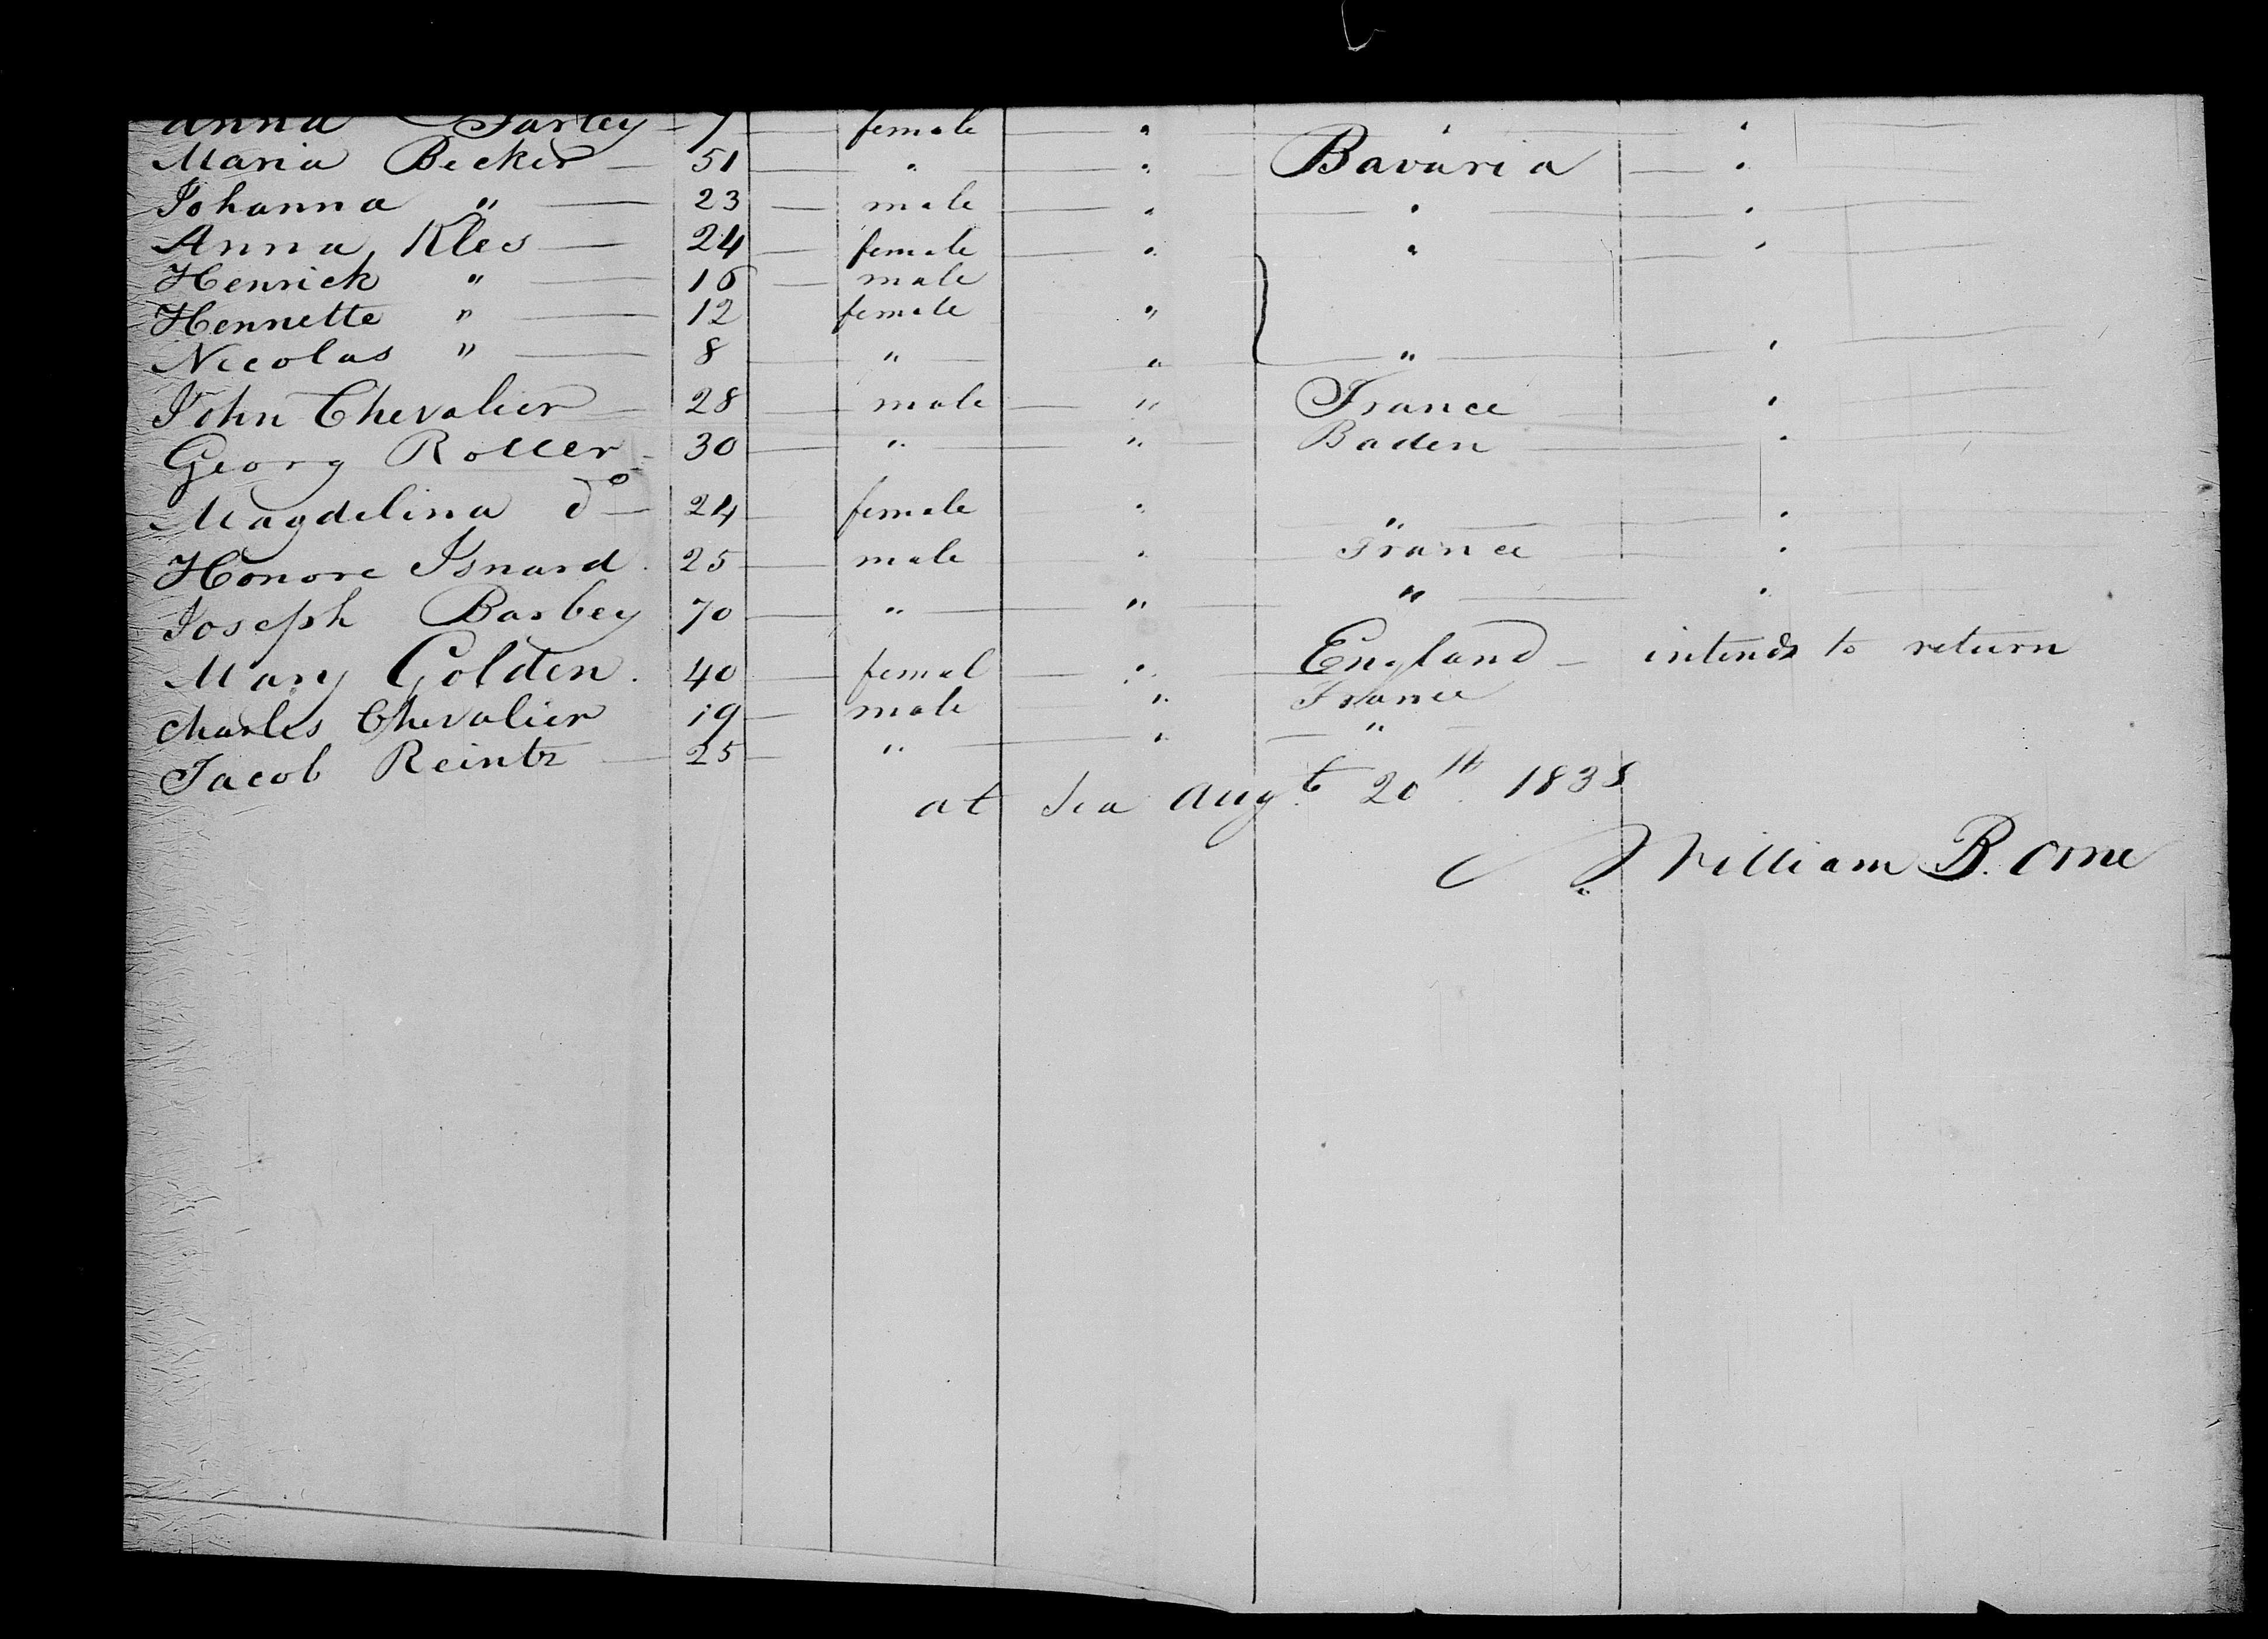 Anna Farley - 7 — female — " " "
Maria Becker — 51 — " — " — Bavaria — "
Johanna " — 23 — male — " — " — "
Anna Kles — 24 — female — " " "
Henrick " — 16 — male
Hennette " — 12 female "
Nicolas " — 8 — " — " — " — "
John Chevalier — 28 — male — " France "
Georg Roller - 30 — " — " — Baden — "
Magdelina do — 24 — female " — " — "
Honore Isnard . 25 — male " France "
Joseph Barbey 70 — " — " — " — "
Mary Golden . 40 — femal — " England — intends to return
Charles Chevalier 19 — male " France
Jacob Reintz — 25 — " — " — "
at Sea Augt 20th 1838
William B. Orne